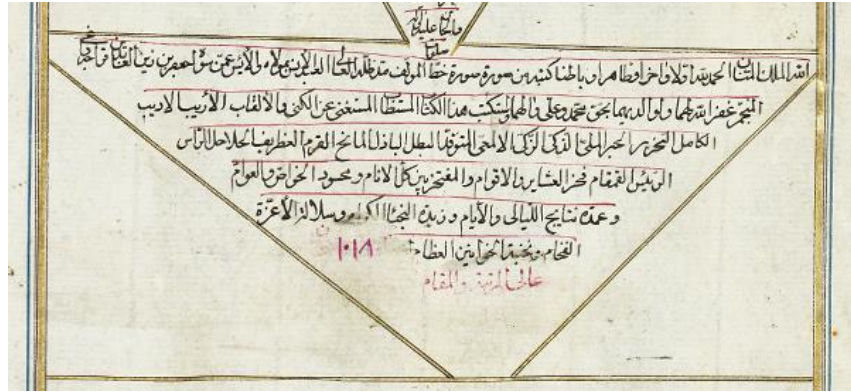 والحا علیه
الله الملك المنان الحمد لله اولا واخرا وظاهرا وباطنا كتبه من سورة صورة خط المؤلف مد ظله العالی العبد الایس عن سواه جعفر بن زین العابدین
المنجم غفر الله لهما ولوالدیهما بحق محمد وعلی والهما والمستکتب هذا الکتاب المستطاب المستغنی عن الکنی والألقاب الأریب الادیب
الکامل النحریر الحبر الملی الذکی الزکی الالمعی المتوقد البطل الباذل المانح القرم الغطریف الحلاحل الراس
الرئیس القمقام فخر العشایر والاقوام والمفتخر بین کل الانام ومحسود الخواص والعوام
وعمدة نتایج اللیالی والأیام وزبدة النجباء الکرام وسلالة الأعزة
الفخام ونخبة الخوانین العظام ١٠١٨
عالی المرتبة والمقام